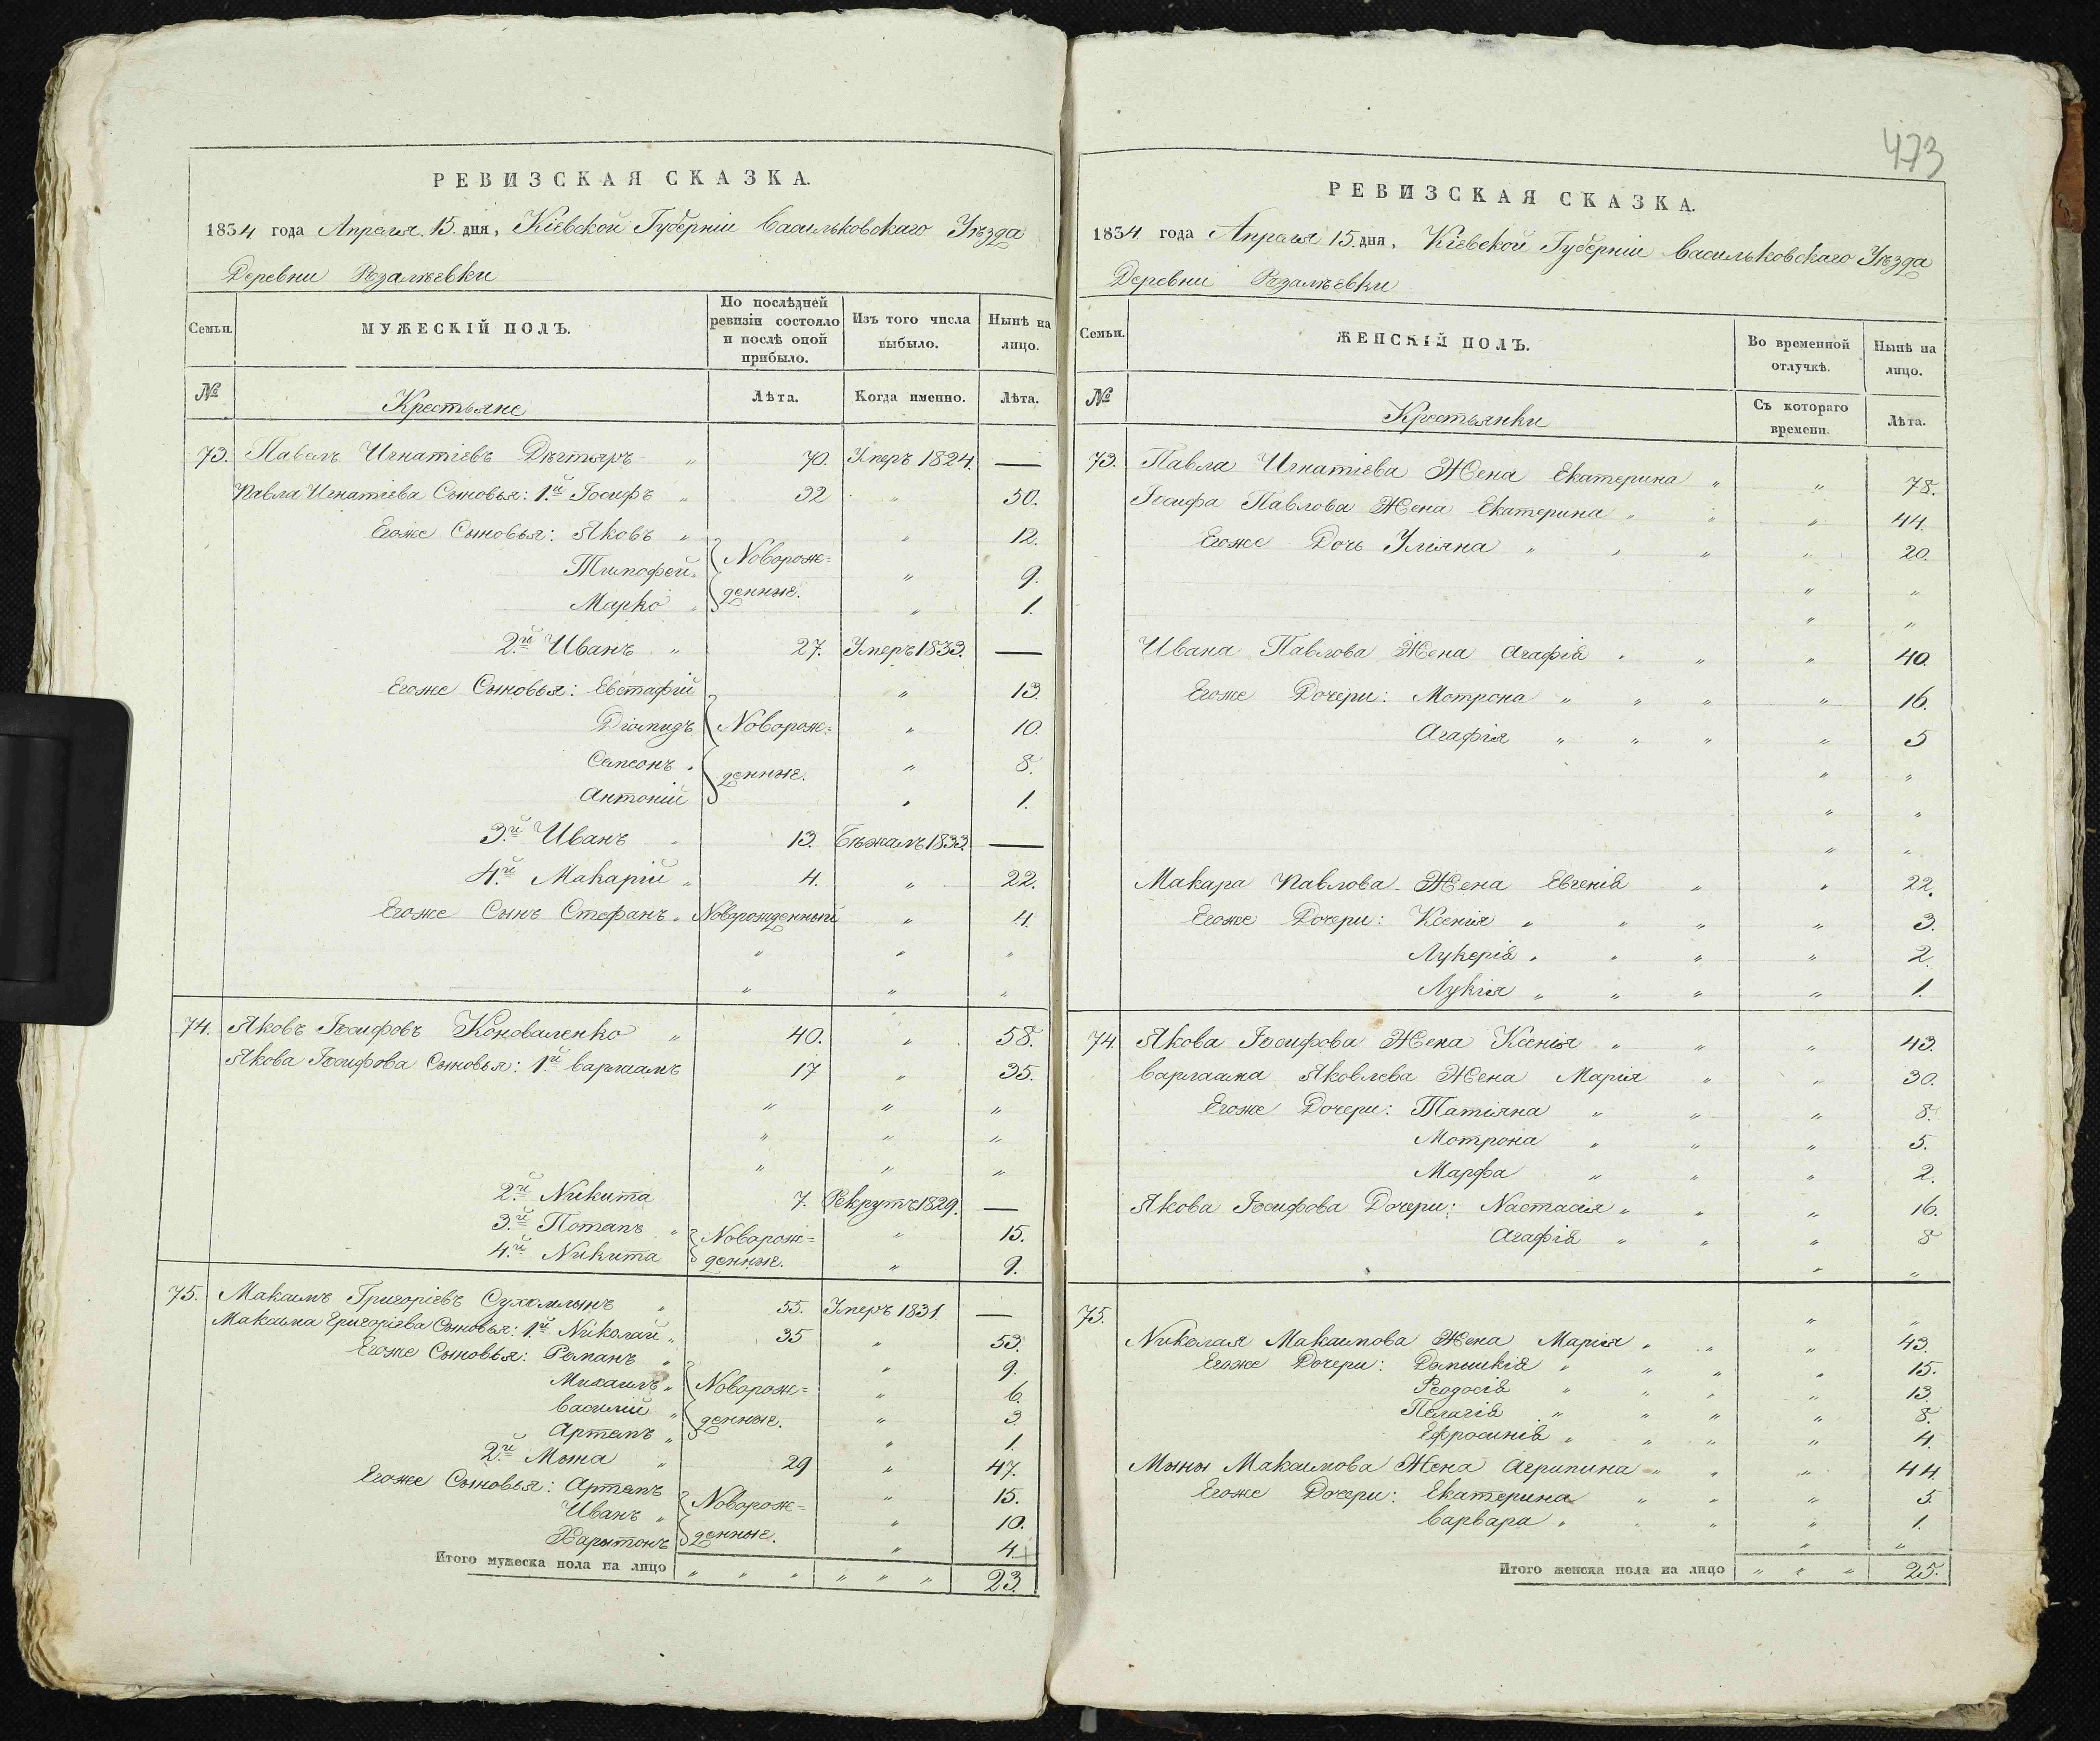 РЕВИЗСКАЯ СКАЗКА.
1834 года Апреля 15. дня, Кіевской Губерніи Васильковскаго Уѣзда
Деревни Розалѣевки
Семьи. МУЖЕСКІЙ ПОЛЪ. По послѣдней ревизіи состояло и послѣ оной прибыло. Изъ того числа выбыло. Нынѣ на лицо.
№ Крестьяне Лѣта. Когда именно. Лѣта.
73. Павелъ Игнатіевъ Дѣгтяръ " 70. Умеръ 1824. —
Павла Игнатіева Сыновья: 1.й Іосифъ " 32 " 50.
Егоже Сыновья: Яковъ " " 12.
Тимофей " Новорож= " 9.
Марко " денные. " 1.
2.й Иванъ " 27. Умеръ 1833. —
Егоже Сыновья: Евстафій " 13.
Діомидъ Новорож= " 10.
Самсонъ " денные. " 8.
Антоній " 1.
3.й Иванъ " 13. Бѣжалъ 1833. —
4.й Макарій " 4. " 22.
Егоже Сынъ Стефанъ " Новорожденный " 4.
" " "
" " "
74. Яковъ Іосифовъ Коноваленко " 40. " 58.
Якова Іосифова Сыновья: 1.й Варлаамъ 17 " 35.
" " "
" " "
" " "
2.й Никита 7. Рекрутъ 1829. —
3.й Потапъ " Новорож= " 15.
4.й Никита денные. " 9.
75. Максимъ Григоріевъ Сухомлынъ " 55. Умеръ 1831. —
Максима Григоріева Сыновья: 1.й Николай " 35 " 53.
Егоже Сыновья: Романъ " " 9.
Михаилъ " Новорож= " 6.
Василій " денные. " 3.
Артемъ " " 1.
2.й Мына " 29 " 47.
Егоже Сыновья: Артемъ " 15.
Иванъ " Новорож= " 10.
Харытонъ денные. " 4.
Итого мужеска пола на лицо " " " " " " 23.
473
РЕВИЗСКАЯ СКАЗКА.
1834 года Апреля 15. дня, Кіевской Губерніи Васильковскаго Уѣзда
Деревни Розалѣевки
Семьи. ЖЕНСКІЙ ПОЛЪ. Во временной отлучкѣ. Нынѣ на лицо.
№ Крестьянки Съ котораго времени. Лѣта.
73. Павла Игнатіева Жена Екатерина " " 78.
Іосифа Павлова Жена Екатерина " " " 44.
Егоже Дочь Уліяна " " " " 20.
" "
" "
Ивана Павлова Жена Агафія " " " 40.
Егоже Дочери: Мотрона " " " " 16.
Агафія " " " " 5
" "
" "
" "
Макара Павлова Жена Евгенія " " 22.
Егоже Дочери: Ксенія " " " " 3.
Лукерія " " " " 2.
Лукія " " " " 1.
74. Якова Іосифова Жена Ксенія " " " 43.
Варлаама Яковлева Жена Марія " " 30.
Егоже Дочери: Татіяна " " " 8.
Мотрона " " " 5.
Марфа " " " 2.
Якова Іосифова Дочери: Настасія " " " 16.
Агафія " " " 8
" "
75. " "
Николая Максимова Жена Марія " " " 43.
Егоже Дочери: Домникія " " " " 15.
Феодосія " " " " 13.
Пелагія " " " " 8.
Ефросинія " " " " 4.
Мыны Максимова Жена Агрипина " " " 44.
Егоже Дочери: Екатерина " " " 5.
Варвара " " " " 1.
" "
Итого женска пола на лицо " " " 25.